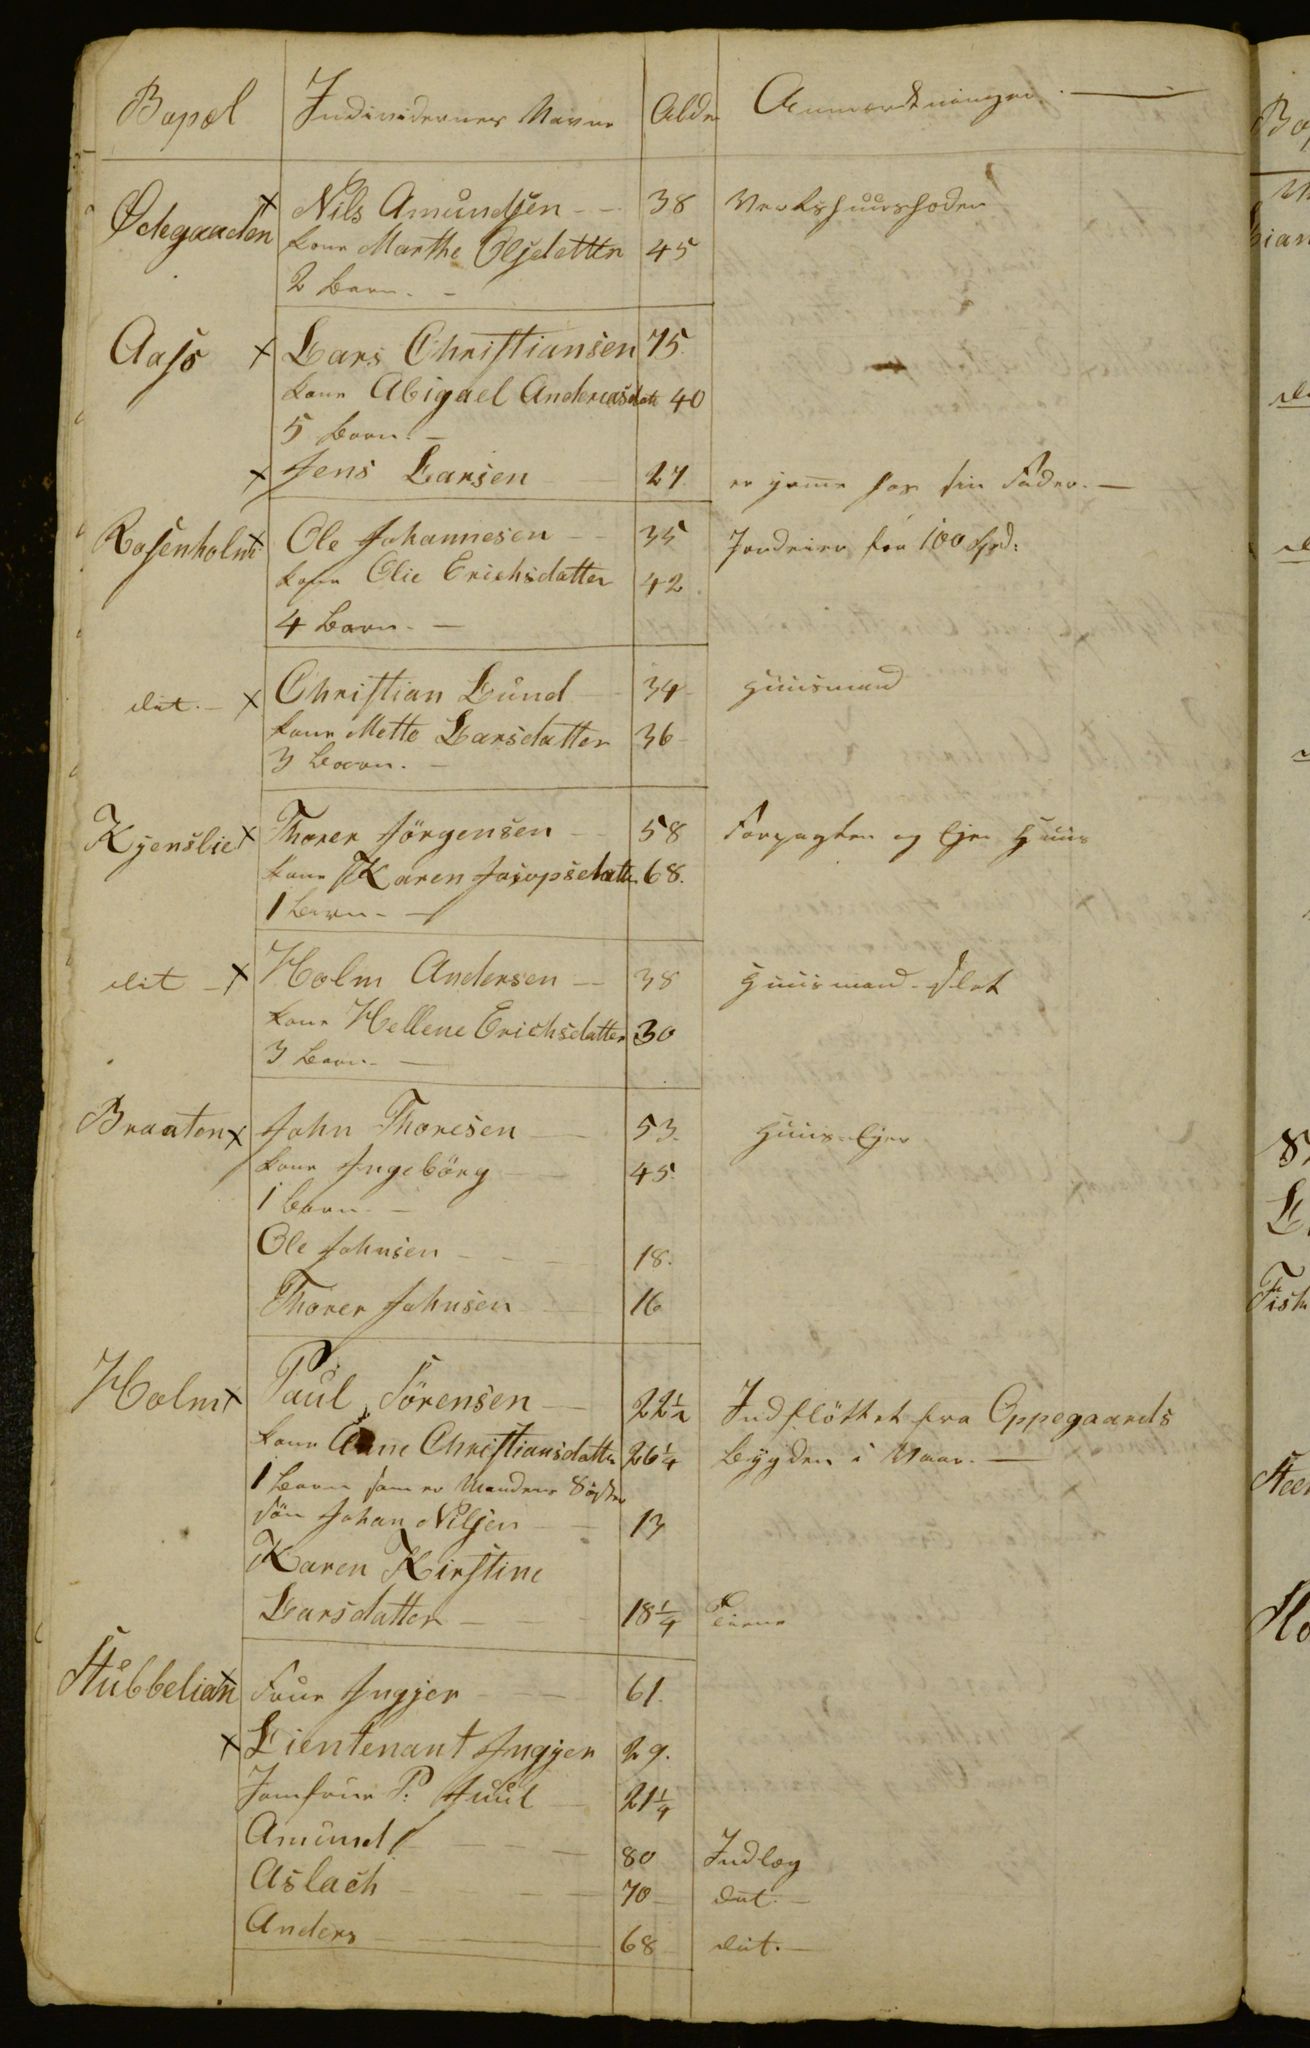 Bopæl Individernes Navne Alder Anmærkninger. —
Ødegaarden x Nils Amundsen - - 38
kone Marthe Olsdatter 45
2 Børn. -
Aasø x Lars Christiansen 75.
kone Abigael Andreasdatt 40
5 Børn. -
x Jens Larsen 27. er hjeme hos sin Fader. —
Rosenholm x Ole Johannesen - - 35 Jordeier for 100 Spd:
kone Olie Erichsdatter 42
4 Børn. —
dit. - x Christian Lund — 34 Huusmand
kone Mette Larsdatter 36 -
3 Børn. -
Kjenslie x Thorer Jörgensen - - 58 Forpagter og Ejer Huus
kone Karen Jacopsdatter 68.
1 Barn. —
dit - x Holm Andersen — 38 Huusmand
kone Hellene Erichsdatter 30
3 Børn. —
Braaten x John Thoresen — 53. Huus-Ejer
kone Ingebörg — 45.
1 Barn. —
Ole Johnsen - - - 18.
Thorer Johnsen — 16
Holm x Paul Sörensen — 22 1/2 Indflöttet fra Oppegaards
kone Anne Christiansdatter 26 1/4 Bygden i Vaar. —
1 Barn som er Mandens Söster
Sön Johan Nilsen — 13
Karen Kirstine
Larsdatter — - - 18 1/4 Tiener
Stubbelian x Frue Ingjer — 61.
x Lieutenant Ingjer 29.
Jomfrue P: Juul — 21 1/4
Amund — - — 80 Indlæg
Aslach - - — 70 - dit. —
Anders — 68 dit. —